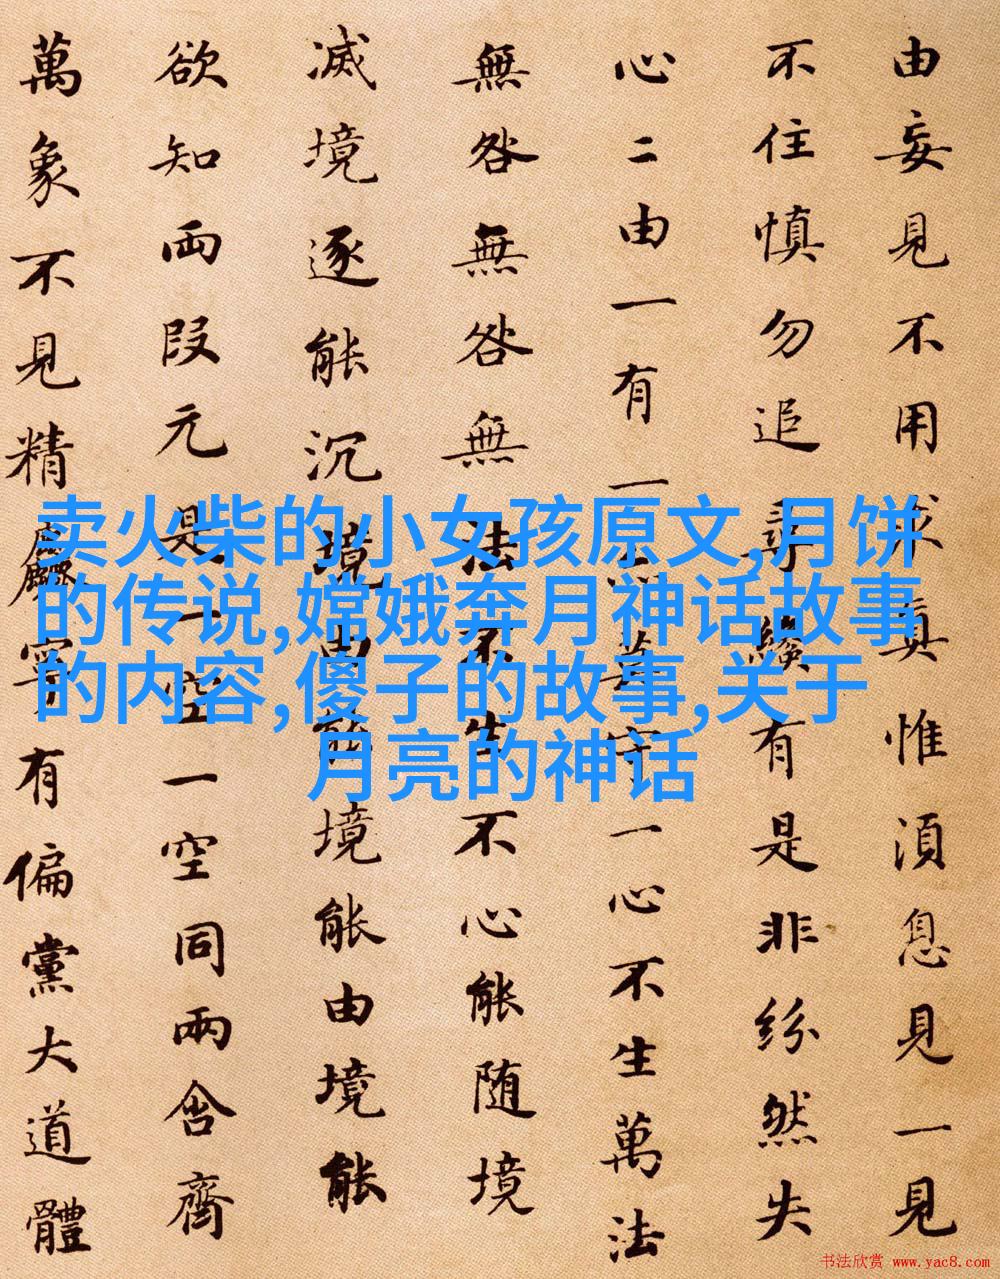 由妄見不用求真惟湏息見一見
不住慎勿追尋纔有是非紛然失
心二由一有一亦莫守一心不生萬法
無咎無咎無法不生不心能随境
滅境逐能沉境由能境能由境能
欲知両段元是一空一空同兩含齊
萬象不見精麤寧有偏黨大道體
卖火柴的小女孩原文,月饼
的传说,嫦娥奔月神话故事
的内容,傻子的故事,关于
月亮的神话
书法欣赏 www.yac8.com